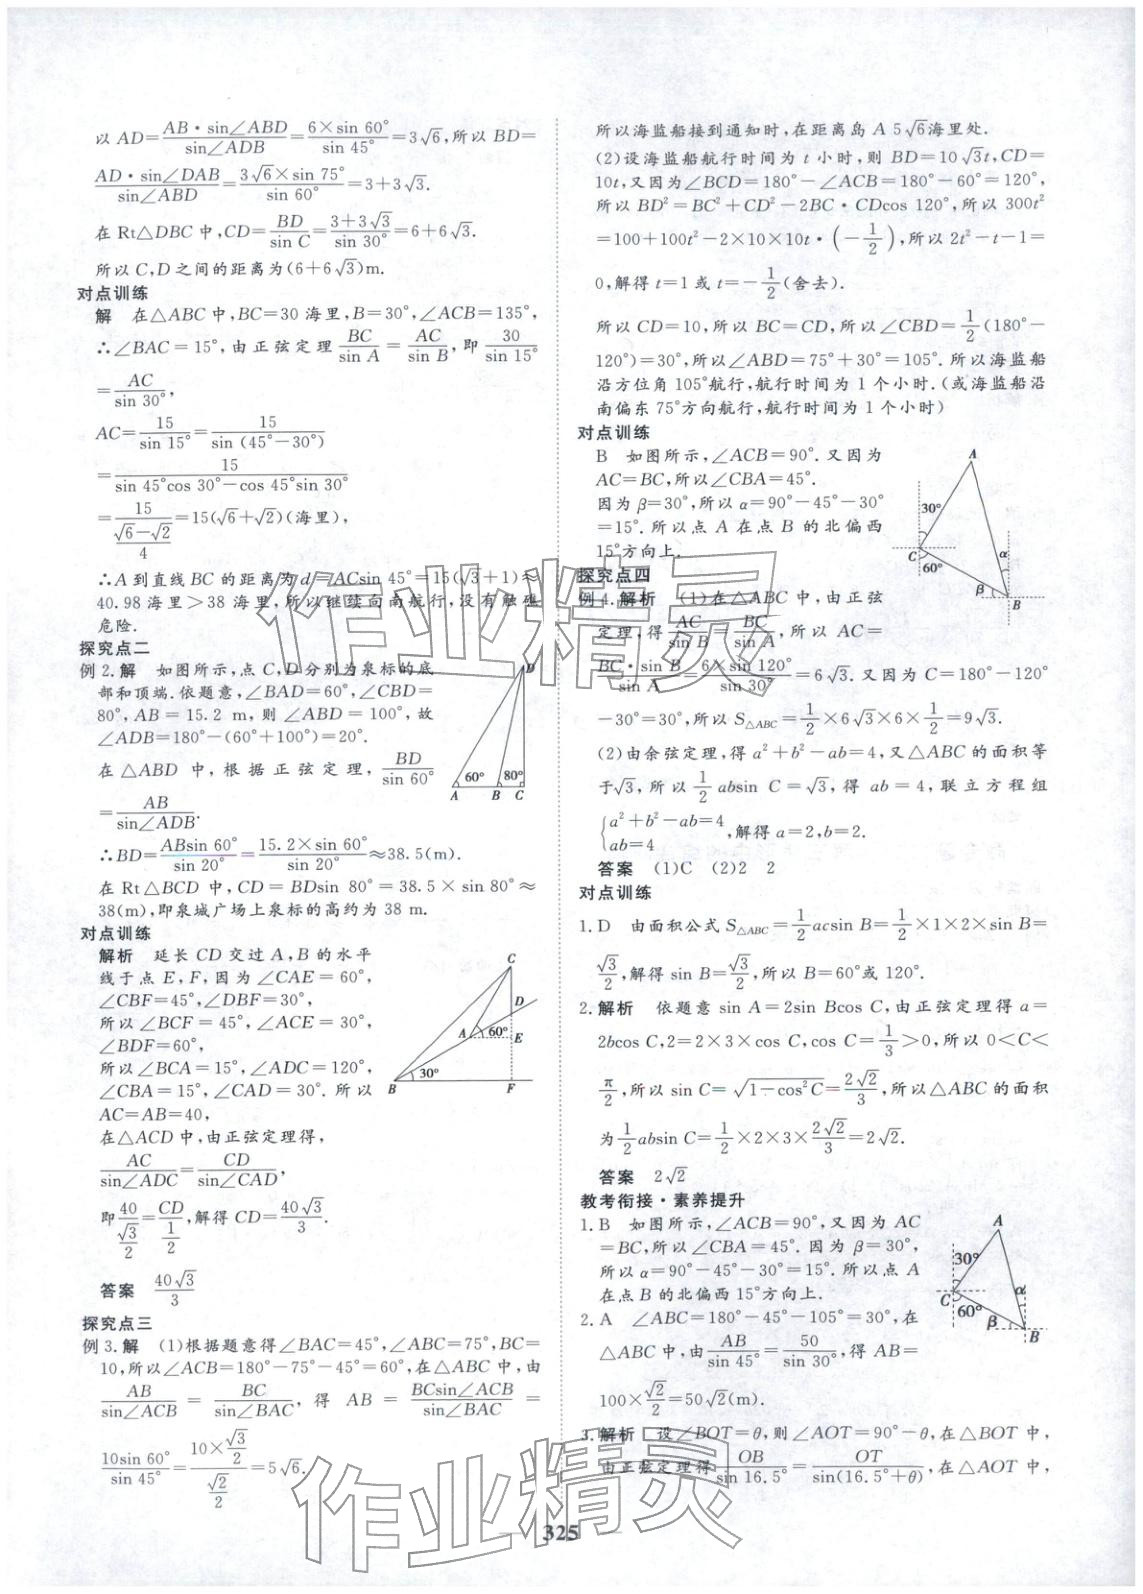 以 AD=AB·sin∠ABD/sin∠ADB=6×sin 60°/sin 45°=3√6,所以 BD=
AD·sin∠DAB/sin∠ABD=3√6×sin 75°/sin 60°=3+3√3.
在 Rt△DBC 中,CD=BD/sin C=3+3√3/sin 30°=6+6√3.
所以 C,D 之间的距离为(6+6√3)m.
对点训练
解 在△ABC 中,BC=30 海里,B=30°,∠ACB=135°,
∴∠BAC=15°,由正弦定理 BC/sin A=AC/sin B,即 30/sin 15°
=AC/sin 30°,
AC=15/sin 15°=15/sin (45°-30°)
=15/sin 45°cos 30°-cos 45°sin 30°
=15/(√6-√2)/4=15(√6+√2)(海里),
∴A 到直线 BC 的距离为 d=ACsin 45°=15(√3+1)≈
40.98 海里>38 海里,所以继续向南航行,没有触礁
危险.
探究点二
例 2.解 如图所示,点 C,D 分别为泉标的底
部和顶端.依题意,∠BAD=60°,∠CBD=
80°,AB=15.2 m,则∠ABD=100°,故
∠ADB=180°-(60°+100°)=20°.
在△ABD 中,根据正弦定理,BD/sin 60°
=AB/sin∠ADB.
∴BD=ABsin 60°/sin 20°=15.2×sin 60°/sin 20°≈38.5(m).
在 Rt△BCD 中,CD=BDsin 80°=38.5×sin 80°≈
38(m),即泉城广场上泉标的高约为 38 m.
D
60°
80°
A B C
对点训练
解析 延长 CD 交过 A,B 的水平
线于点 E,F,因为∠CAE=60°,
∠CBF=45°,∠DBF=30°,
所以∠BCF=45°,∠ACE=30°,
∠BDF=60°,
所以∠BCA=15°,∠ADC=120°,
∠CBA=15°,∠CAD=30°.所以
AC=AB=40,
在△ACD 中,由正弦定理得,
AC/sin∠ADC=CD/sin∠CAD,
即40/(√3/2)=CD/(1/2),解得 CD=40√3/3.
答案 40√3/3
C
D
A 60° E
30°
B F
探究点三
例 3.解 (1)根据题意得∠BAC=45°,∠ABC=75°,BC=
10,所以∠ACB=180°-75°-45°=60°,在△ABC 中,由
AB/sin∠ACB=BC/sin∠BAC,得 AB=BCsin∠ACB/sin∠BAC=
10sin 60°/sin 45°=(10×√3/2)/(√2/2)=5√6.
所以海监船接到通知时,在距离岛 A 5√6海里处.
(2)设海监船航行时间为 t 小时,则 BD=10√3t,CD=
10t,又因为∠BCD=180°-∠ACB=180°-60°=120°,
所以 BD²=BC²+CD²-2BC·CDcos 120°,所以 300t²
=100+100t²-2×10×10t·(-1/2),所以 2t²-t-1=
0,解得 t=1 或 t=-1/2(舍去).
所以 CD=10,所以 BC=CD,所以∠CBD=1/2(180°-
120°)=30°,所以∠ABD=75°+30°=105°.所以海监船
沿方位角 105°航行,航行时间为 1 个小时.(或海监船沿
南偏东 75°方向航行,航行时间为 1 个小时)
对点训练
B 如图所示,∠ACB=90°.又因为
AC=BC,所以∠CBA=45°.
因为 β=30°,所以 α=90°-45°-30°
=15°.所以点 A 在点 B 的北偏西
15°方向上.
A
30°
C
60°
α
β
B
探究点四
例 4.解析 (1)在△ABC 中,由正弦
定理,得AC/sin B=BC/sin A,所以 AC=
BC·sin B/sin A=6×sin 120°/sin 30°=6√3.又因为 C=180°-120°
-30°=30°,所以 S△ABC=1/2×6√3×6×1/2=9√3.
(2)由余弦定理,得 a²+b²-ab=4,又△ABC 的面积等
于√3,所以 1/2 absin C=√3,得 ab=4,联立方程组
{a²+b²-ab=4
ab=4,解得 a=2,b=2.
答案 (1)C (2)2 2
对点训练
1.D 由面积公式 S△ABC=1/2acsin B=1/2×1×2×sin B=
√3/2,解得 sin B=√3/2,所以 B=60°或 120°.
2.解析 依题意 sin A=2sin Bcos C,由正弦定理得 a=
2bcos C,2=2×3×cos C,cos C=1/3>0,所以 0<C<
π/2,所以 sin C=√1-cos²C=2√2/3,所以△ABC 的面积
为1/2absin C=1/2×2×3×2√2/3=2√2.
答案 2√2
教考衔接·素养提升
1.B 如图所示,∠ACB=90°,又因为 AC
=BC,所以∠CBA=45°.因为 β=30°,
所以 α=90°-45°-30°=15°.所以点 A
在点 B 的北偏西 15°方向上.
A
30°
C
60°
α
β
B
2.A ∠ABC=180°-45°-105°=30°,在
△ABC 中,由AB/sin 45°=50/sin 30°,得 AB=
100×√2/2=50√2(m).
3.解析 设∠BOT=θ,则∠AOT=90°-θ,在△BOT 中,
由正弦定理得OB/sin 16.5°=OT/sin(16.5°+θ),在△AOT 中,
325
作业精灵
作业精灵